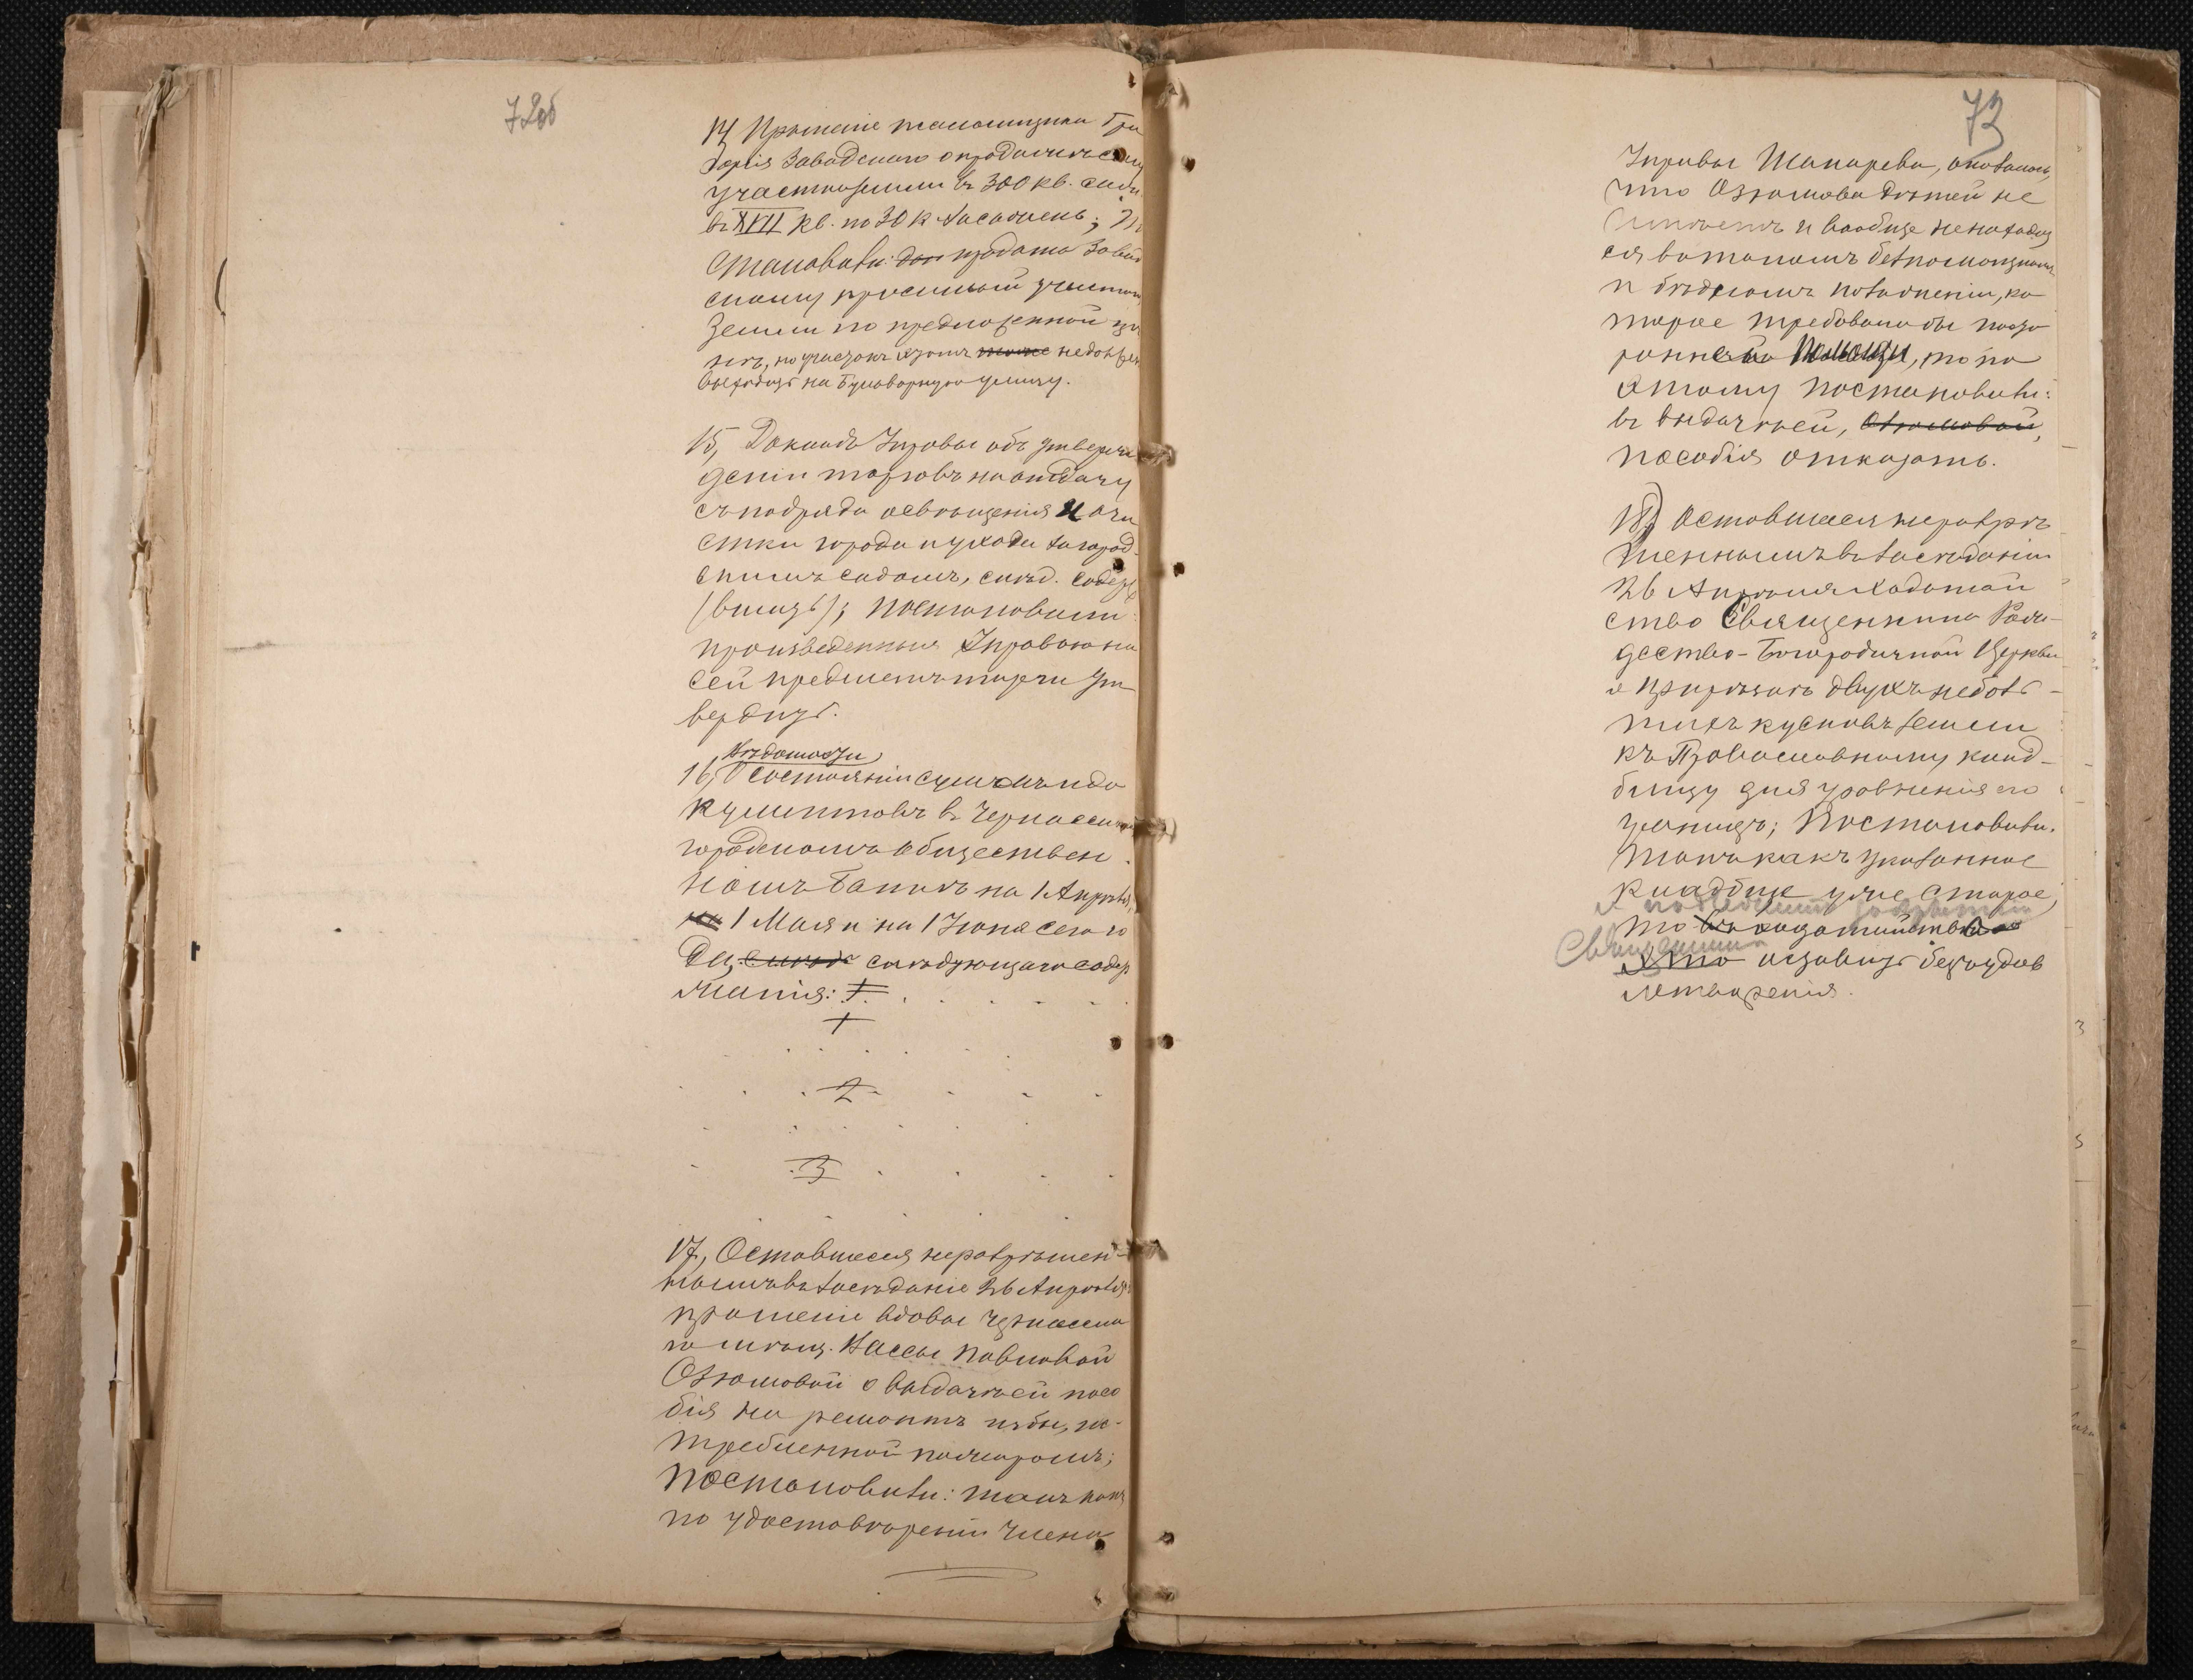 72об
14, Прошеніе жаломщика Гри
горія Завадскаго о продажѣ ему
участка земли въ 300 кв. саж.
въ XVII кв. по 30 к. за сажень; По
становили: продать Завад
скому просимый участокъ
земли по предложенной цѣ
нѣ, но участокъ этотъ недолженъ
выходить на Бульварную улицу.
15, Докладъ Управы объ утверж
деніи торговъ на отдачу
съ подряда освѣщенія и очи
стки города и ухода за город
скимъ садомъ, слѣд. содерж
(вписать); Постановили:
произведенные Управою на
сей предметъ торги ут
вердить.
Вѣдомости
16, О состояніи суммъ и до
кументовъ въ Черкасскомъ
городскомъ Обществен
номъ Банкѣ на 1 Апрѣля,
1 Мая и на 1 Іюня сего го
да, слѣдующаго содер
жанія: 1
1
2
3
17, Оставшееся неразрѣшен
нымъ въ засѣданіе 26 Апрѣля
прошеніе вдовы Черкасска
го мѣщ. Павловой
о выдачѣ ей посо
бія на ремонтъ избы, ис
требленной пожаромъ;
Постановили: такъ какъ
по удостовѣренію Члена
73
Управы Шапарева, оказалось,
что дѣтей не
имѣетъ и вообще ненаходит
ся въ такомъ безпомощномъ
и бѣдномъ положеніи, ко
торое требовало бы посто
ронней помощи, то по
этому постановили:
въ выдачѣ ей,
пособія отказать.
18, Оставшееся неразрѣ
шеннымъ въ засѣданіи
26 Апрѣля ходатай
ство Священника Рож
дество-Богородичной Церкви
о прирѣзкѣ двухъ неболь
шихъ кусковъ земли
къ Православному клад
бищу для уравненія его
границъ; Постановили:
такъ какъ указанное
кладбище уже старое,
и подлежитъ закрытію
то ходатайство
Священника
это оставить безъ удов
летворенія.